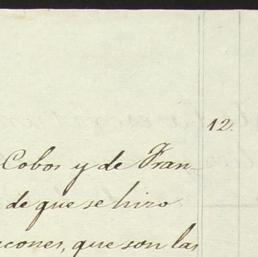 12.
Cobos y de Fran-
de que se hizo
acones, que son las